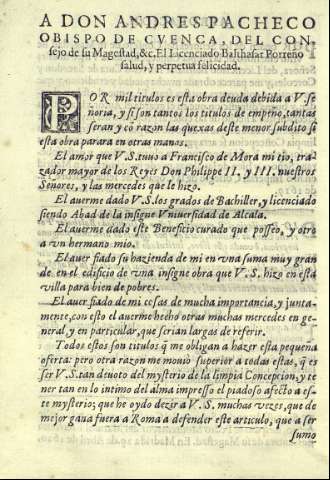 A DON ANDRES PACHECO
OBISPO DE CVENCA, DEL CON
sejo de su Magestad, &c, El Licenciado Balthasar Porreño
salud, y perpetua felicidad.
POR mil titulos es esta obra deuda debida a V.Se
ñoria, y si son tantos los titulos de empeño, tantas
seran y cõ razon las quexas deste menor subdito si
esta obra parara en otras manos.
El amor que V.S. tuuo a Francisco de Mora mi tio, tra
zador mayor de los Reyes Don Philippe II. y III. nuestros
Señores, y las mercedes que le hizo.
El auerme dado V.S. los grados de Bachiller, y licenciado
siendo Abad de la insigne Vniuersidad de Alcala.
El auerme dado este Beneficio curado que posseo, y otro
a vn hermano mio.
El auer fiado su hazienda de mi en vna suma muy gran
de en el edificio de vna insigne obra que V.S. hizo en esta
villa para bien de pobres.
El auer fiado de mi cosas de mucha importancia, y junta-
mente, con esto el auerme hecho otras muchas mercedes en ge
neral, y en particular, que serian largas de referir.
Todos estos son titulos q̃ me obligan a hazer esta pequeña
oferta: pero otra razon me mouio superior a todas estas, q̃ es
ser V.S. tan deuoto del mysterio de la limpia Concepcion, y te
ner tan en lo intimo del alma impresso el piadoso afecto a es-
te mysterio; que he oydo dezir a V.S. muchas vezes, que de
mejor gana fuera a Roma a defender este articulo, que a ser
sumo